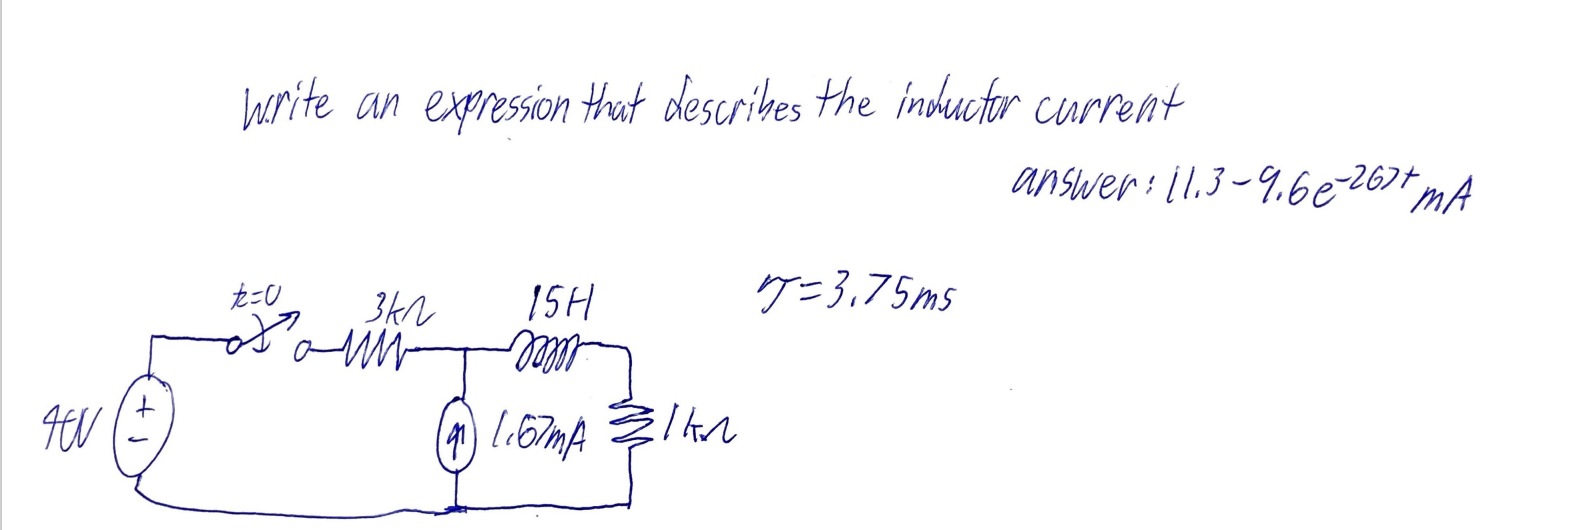 write an expression that describes the inductor current
answer: 11.3-9.6e^-267t mA
t=0
3kΩ
15H
τ=3.75ms
40V
+
-
1.67mA
1kΩ